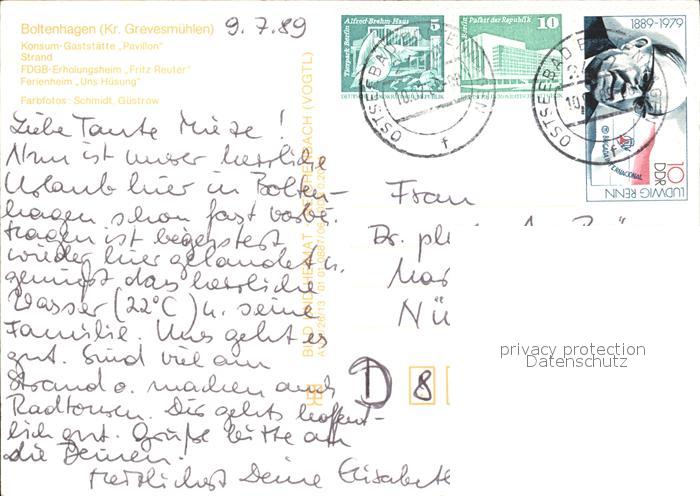 Boltenhagen (Kr. Grevesmühlen)
9.7.89
Konsum-Gaststätte „Pavillon"
Strand
FDGB-Erholungsheim „Fritz Reuter"
Ferienheim „Uns Hüsung"
Farbfotos: Schmidt, Güstrow
Liebe Tante Mieze!
Nun ist unser herrliche
Urlaub hier in Bolten-
hagen schon fast vorbei.
ist begeistert
wieder hier gelandet u.
genießt das herrliche
Wasser (22°C) u. seine
Familie. Uns geht es
gut. Sind viel am
Strand o. machen auch
Radtouren. Dir gehts hoffent-
lich gut. Grüße bitte an
die Deinen!
Herzlichst Deine Elisabeth
BILD UND HEIMAT REICHENBACH (VOGTL)
Alfred-Brehm-Haus
Tierpark Berlin
5
Berlin, Palast der Republik
10
1889-1979
BRIGADA INTERNACIONAL
10
DDR
LUDWIG RENN
OSTSEEBAD
OSTSEEBAD
Frau
Dr.
Nü
D 8
privacy protection
Datenschutz